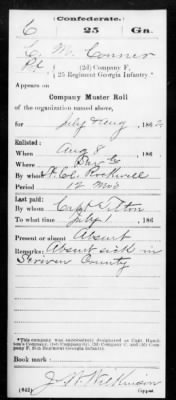 C
(Confederate.)
25 Ga.
C. M. Conner
Pt, (2d) Company F,
25 Regiment Georgia Infantry.*
Appears on
Company Muster Roll
of the organization named above,
for July & Aug, 1862
Enlisted:
When Aug 8, 186
Where
By whom Lt. Col. Rockwell
Period 12 mos
Last paid:
By whom Capt
To what time July 1, 186
Present or absent Absent
Remarks: Absent sick in
Scriven County
*This company was successively designated as Capt.
Company, (2d) Company C, and (2d) Com-
pany F, 25th Regiment Georgia Infantry.
Book mark:
J. W. Wilkinson
(642)
Copyist.